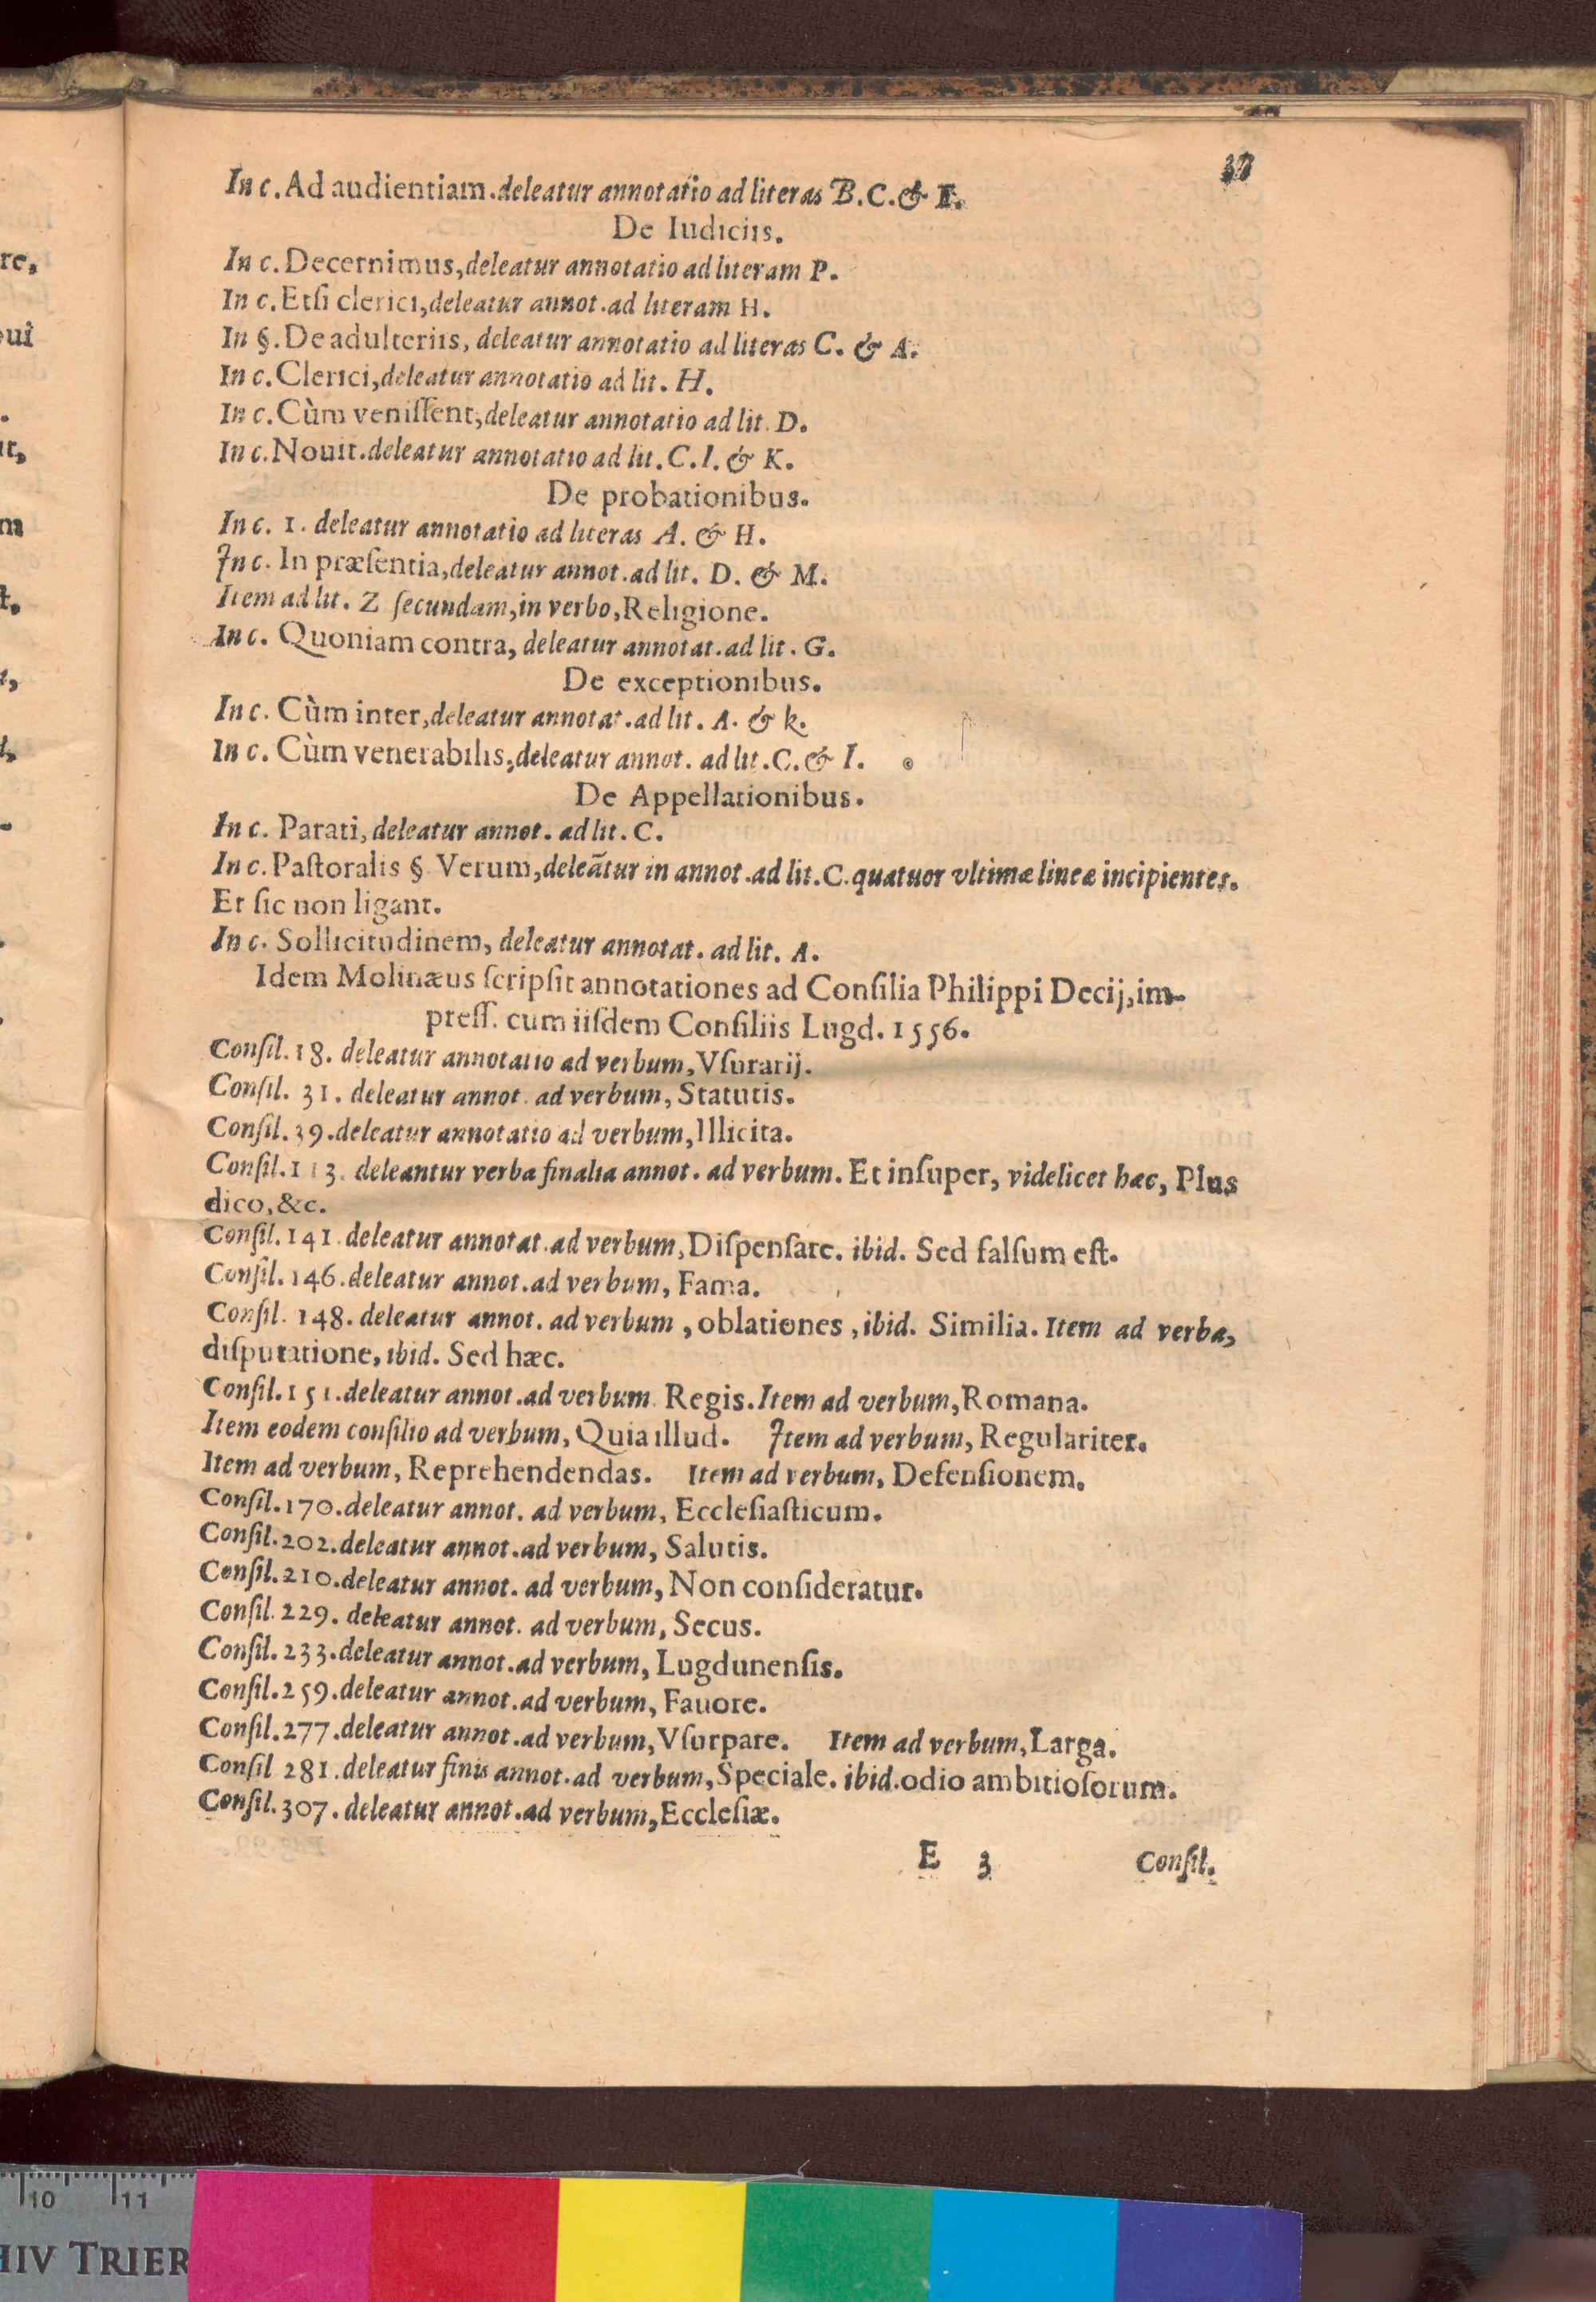 In c. Ad audientiam. deleatur annotatio ad literas B. C. & I.
De Iudiciis.
In c. Decernimus, deleatur annotatio ad literam P.
In c. Etſi clerici, deleatur annot. ad literam H.
In §. De adulteriis, deleatur annotatio ad literas C. & A.
In c. Clerici, deleatur annotatio ad lit. H.
In c. Cùm veniſſent, deleatur annotatio ad lit. D.
In c. Nouit. deleatur annotatio ad lit. C. I. & K.
De probationibus.
In c. 1. deleatur annotatio ad literas A. & H.
In c. In præſentia, deleatur annot. ad lit. D. & M.
Item ad lit. Z ſecundam, in verbo, Religione.
In c. Quoniam contra, deleatur annotat. ad lit. G.
De exceptionibus.
In c. Cùm inter, deleatur annotat. ad lit. A. & k.
In c. Cùm venerabilis, deleatur annot. ad lit. C. & I.
De Appellationibus.
In c. Parati, deleatur annot. ad lit. C.
In c. Paſtoralis § Verum, deleãtur in annot. ad lit. C. quatuor vltimæ lineæ incipientes.
Et ſic non ligant.
In c. Sollicitudinem, deleatur annotat. ad lit. A.
Idem Molinæus ſcripſit annotationes ad Conſilia Philippi Decij, im-
preſſ. cum iiſdem Conſiliis Lugd. 1556.
Conſil. 18. deleatur annotatio ad verbum, Vſurarij.
Conſil. 31. deleatur annot. ad verbum, Statutis.
Conſil. 39. deleatur annotatio ad verbum, Illicita.
Conſil. 113. deleantur verba finalia annot. ad verbum. Et inſuper, videlicet hæc, Plus
dico, &c.
Conſil. 141. deleatur annotat. ad verbum, Diſpenſare. ibid. Sed falſum eſt.
Conſil. 146. deleatur annot. ad verbum, Fama.
Conſil. 148. deleatur annot. ad verbum, oblationes, ibid. Similia. Item ad verba,
diſputatione, ibid. Sed hæc.
Conſil. 151. deleatur annot. ad verbum. Regis. Item ad verbum, Romana.
Item eodem conſilio ad verbum, Quia illud. Item ad verbum, Regulariter.
Item ad verbum, Reprehendendas. Item ad verbum, Defenſionem.
Conſil. 170. deleatur annot. ad verbum, Eccleſiaſticum.
Conſil. 202. deleatur annot. ad verbum, Salutis.
Conſil. 210. deleatur annot. ad verbum, Non conſideratur.
Conſil. 229. deleatur annot. ad verbum, Secus.
Conſil. 233. deleatur annot. ad verbum, Lugdunenſis.
Conſil. 259. deleatur annot. ad verbum, Fauore.
Conſil. 277. deleatur annot. ad verbum, Vſurpare. Item ad verbum, Larga.
Conſil 281. deleatur finis annot. ad verbum, Speciale. ibid. odio ambitioſorum.
Conſil. 307. deleatur annot. ad verbum, Eccleſiæ.
E 3 Conſil.
10 11
HIV TRIER